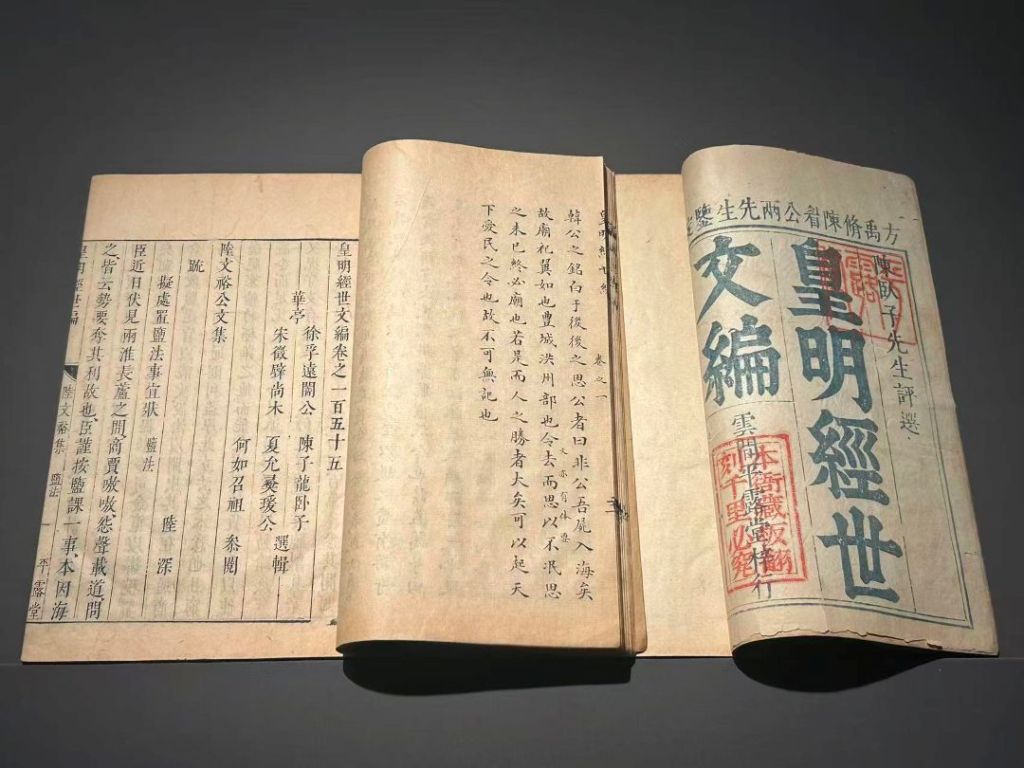 方禹脩陳眉公兩先生鑒
陳臥子先生評選
皇明經世
文編
雲間平露堂梓行
本衙藏版翻
刻千里必究
皇明經世編 卷之一
韓公之銘白于後後之思公者曰非公吾屍入海矣
故廟祀翼如也豐城洪州部也令去而思以不泯思
文亦有体要
之未已終必廟也若是而人之勝者大矣可以起天
下愛民之令也故不可無記也
皇明經世文編卷之一百五十五
華亭 徐孚遠闇公 陳子龍臥子 選輯
宋徵璧尚木 夏允彝瑗公
何如召祖 參閱
陸文裕公文集
疏
擬處置鹽法事宜狀 鹽法 陸 深
臣近日伏見兩淮長蘆之間商賈嗷嗷怨聲載道問
之皆云勢要奪其利故也臣謹按鹽課一事本因海
皇明經世編 陸文裕集 鹽法 一 平露堂